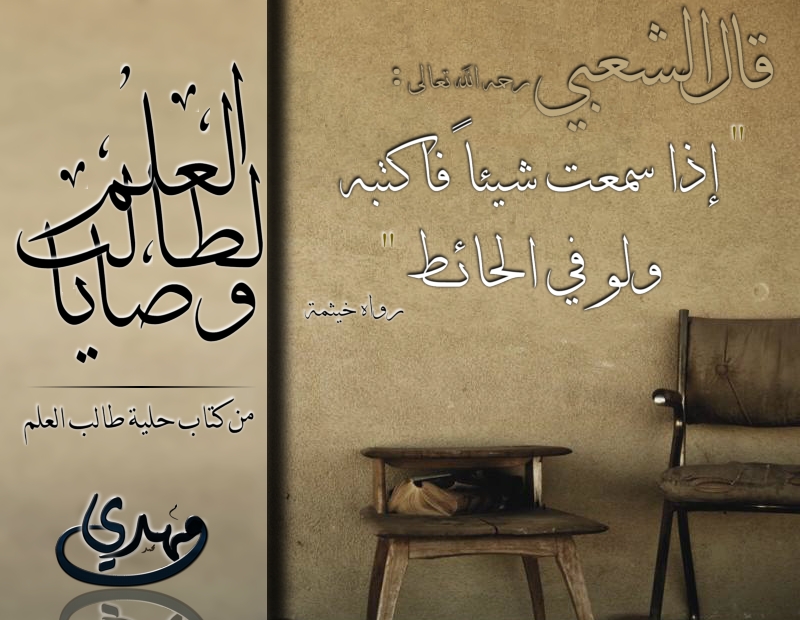 قال الشعبي رحمه الله تعالى :
" إذا سمعت شيئاً فاكتبه
ولو في الحائط "
رواه خيثمة
وصايا
لطالب
العلم
من كتاب حلية طالب العلم
مهدي